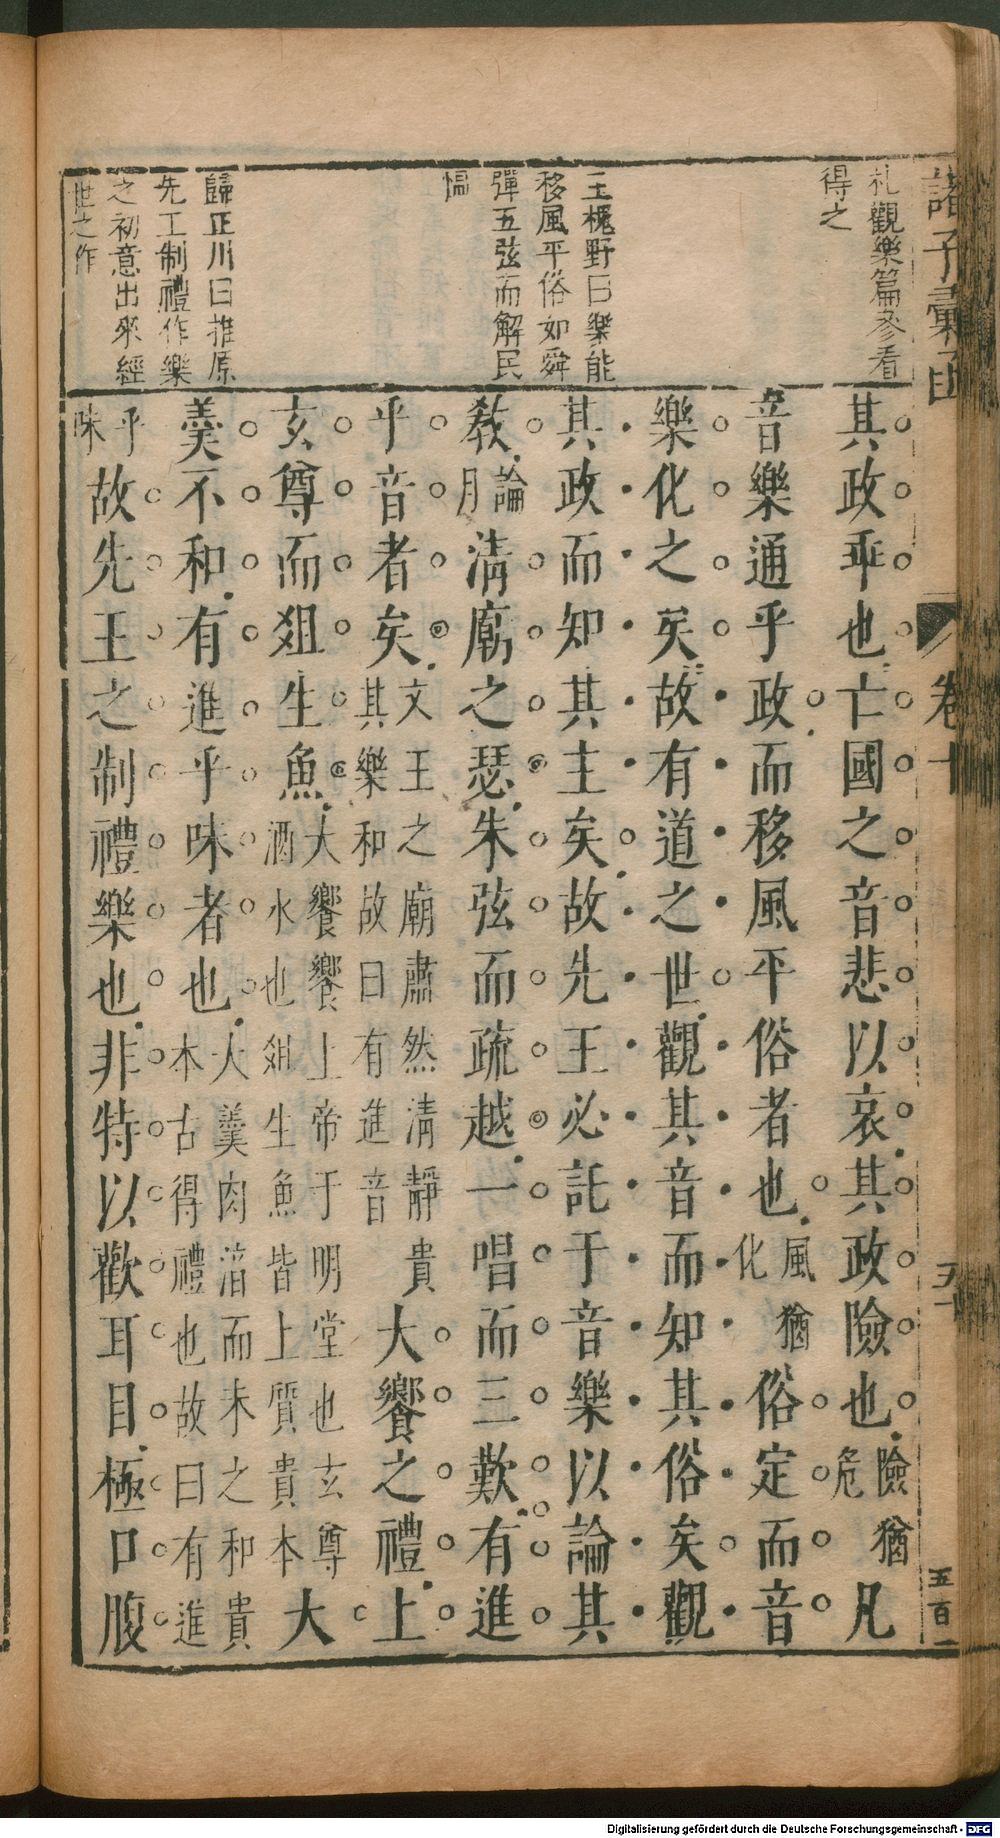 諸子彙函
卷十
五十
五百一
札觀樂篇參看
得之
王槐野曰樂能
移風平俗如舜
彈五弦而解民
慍
歸正川曰推原
先王制禮作樂
之初意出來經
世之作
其政乖也亡國之音悲以哀其政險也險猶危凡
音樂通乎政而移風平俗者也風猶化俗定而音
樂化之矣故有道之世觀其音而知其俗矣觀
其政而知其主矣故先王必託于音樂以論其
教論月清廟之瑟朱弦而疏越一唱而三歎有進
乎音者矣文王之廟肅然清靜貴其樂和故曰有進音大饗之禮上
玄尊而俎生魚大饗饗上帝于明堂也玄尊酒水也俎生魚皆上質貴本大
羹不和有進乎味者也大羹肉湆而未之和貴本古得禮也故曰有進
乎味故先王之制禮樂也非特以歡耳目極口腹
Digitalisierung gefördert durch die Deutsche Forschungsgemeinschaft - DFG